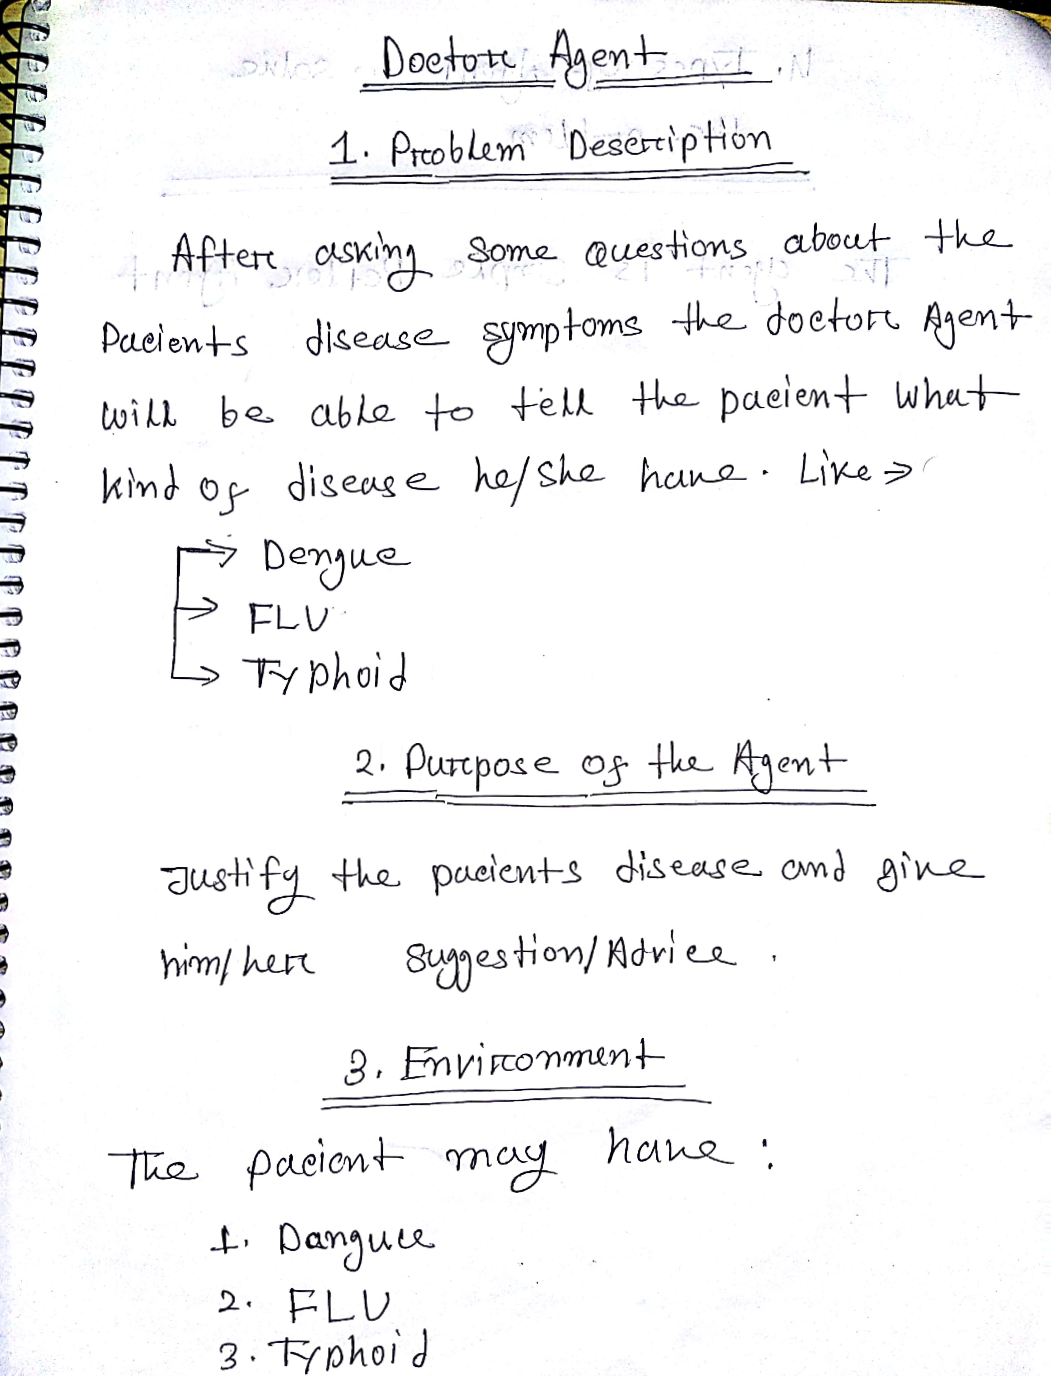 Doctor Agent
1. Problem Description
After asking some Questions about the
Pacients disease symptoms the doctor Agent
will be able to tell the pacient what
kind of disease he/she have. Like ⇒
→ Dengue
→ FLU
→ Typhoid
2. Purpose of the Agent
Justify the pacients disease and give
him/her suggestion/Advice.
3. Environment
The pacient may have:
1. Danguee
2. FLU
3. Typhoid